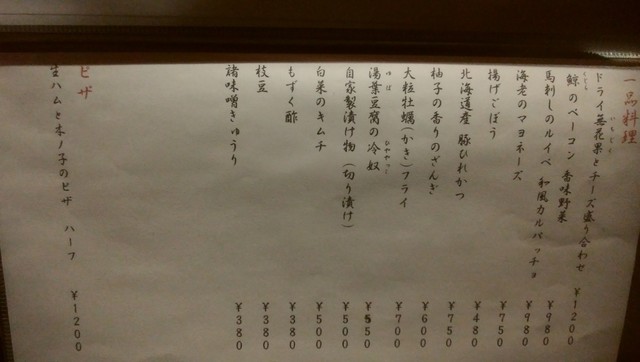 一品料理
ドライ無花果とチーズ盛り合わせ ¥1200
鯨のベーコン 香味野菜 ¥980
馬刺しのルイベ 和風カルパッチョ ¥980
海老のマヨネーズ ¥750
揚げごぼう ¥480
北海道産 豚ひれかつ ¥750
柚子の香りのざんぎ ¥600
大粒牡蠣(かき)フライ ¥700
湯葉豆腐の冷奴 ¥550
自家製漬け物(切り漬け) ¥500
白菜のキムチ ¥500
もずく酢 ¥380
枝豆 ¥380
諸味噌きゅうり ¥380
ピザ
生ハムと木ノ子のピザ ハーフ ¥1200